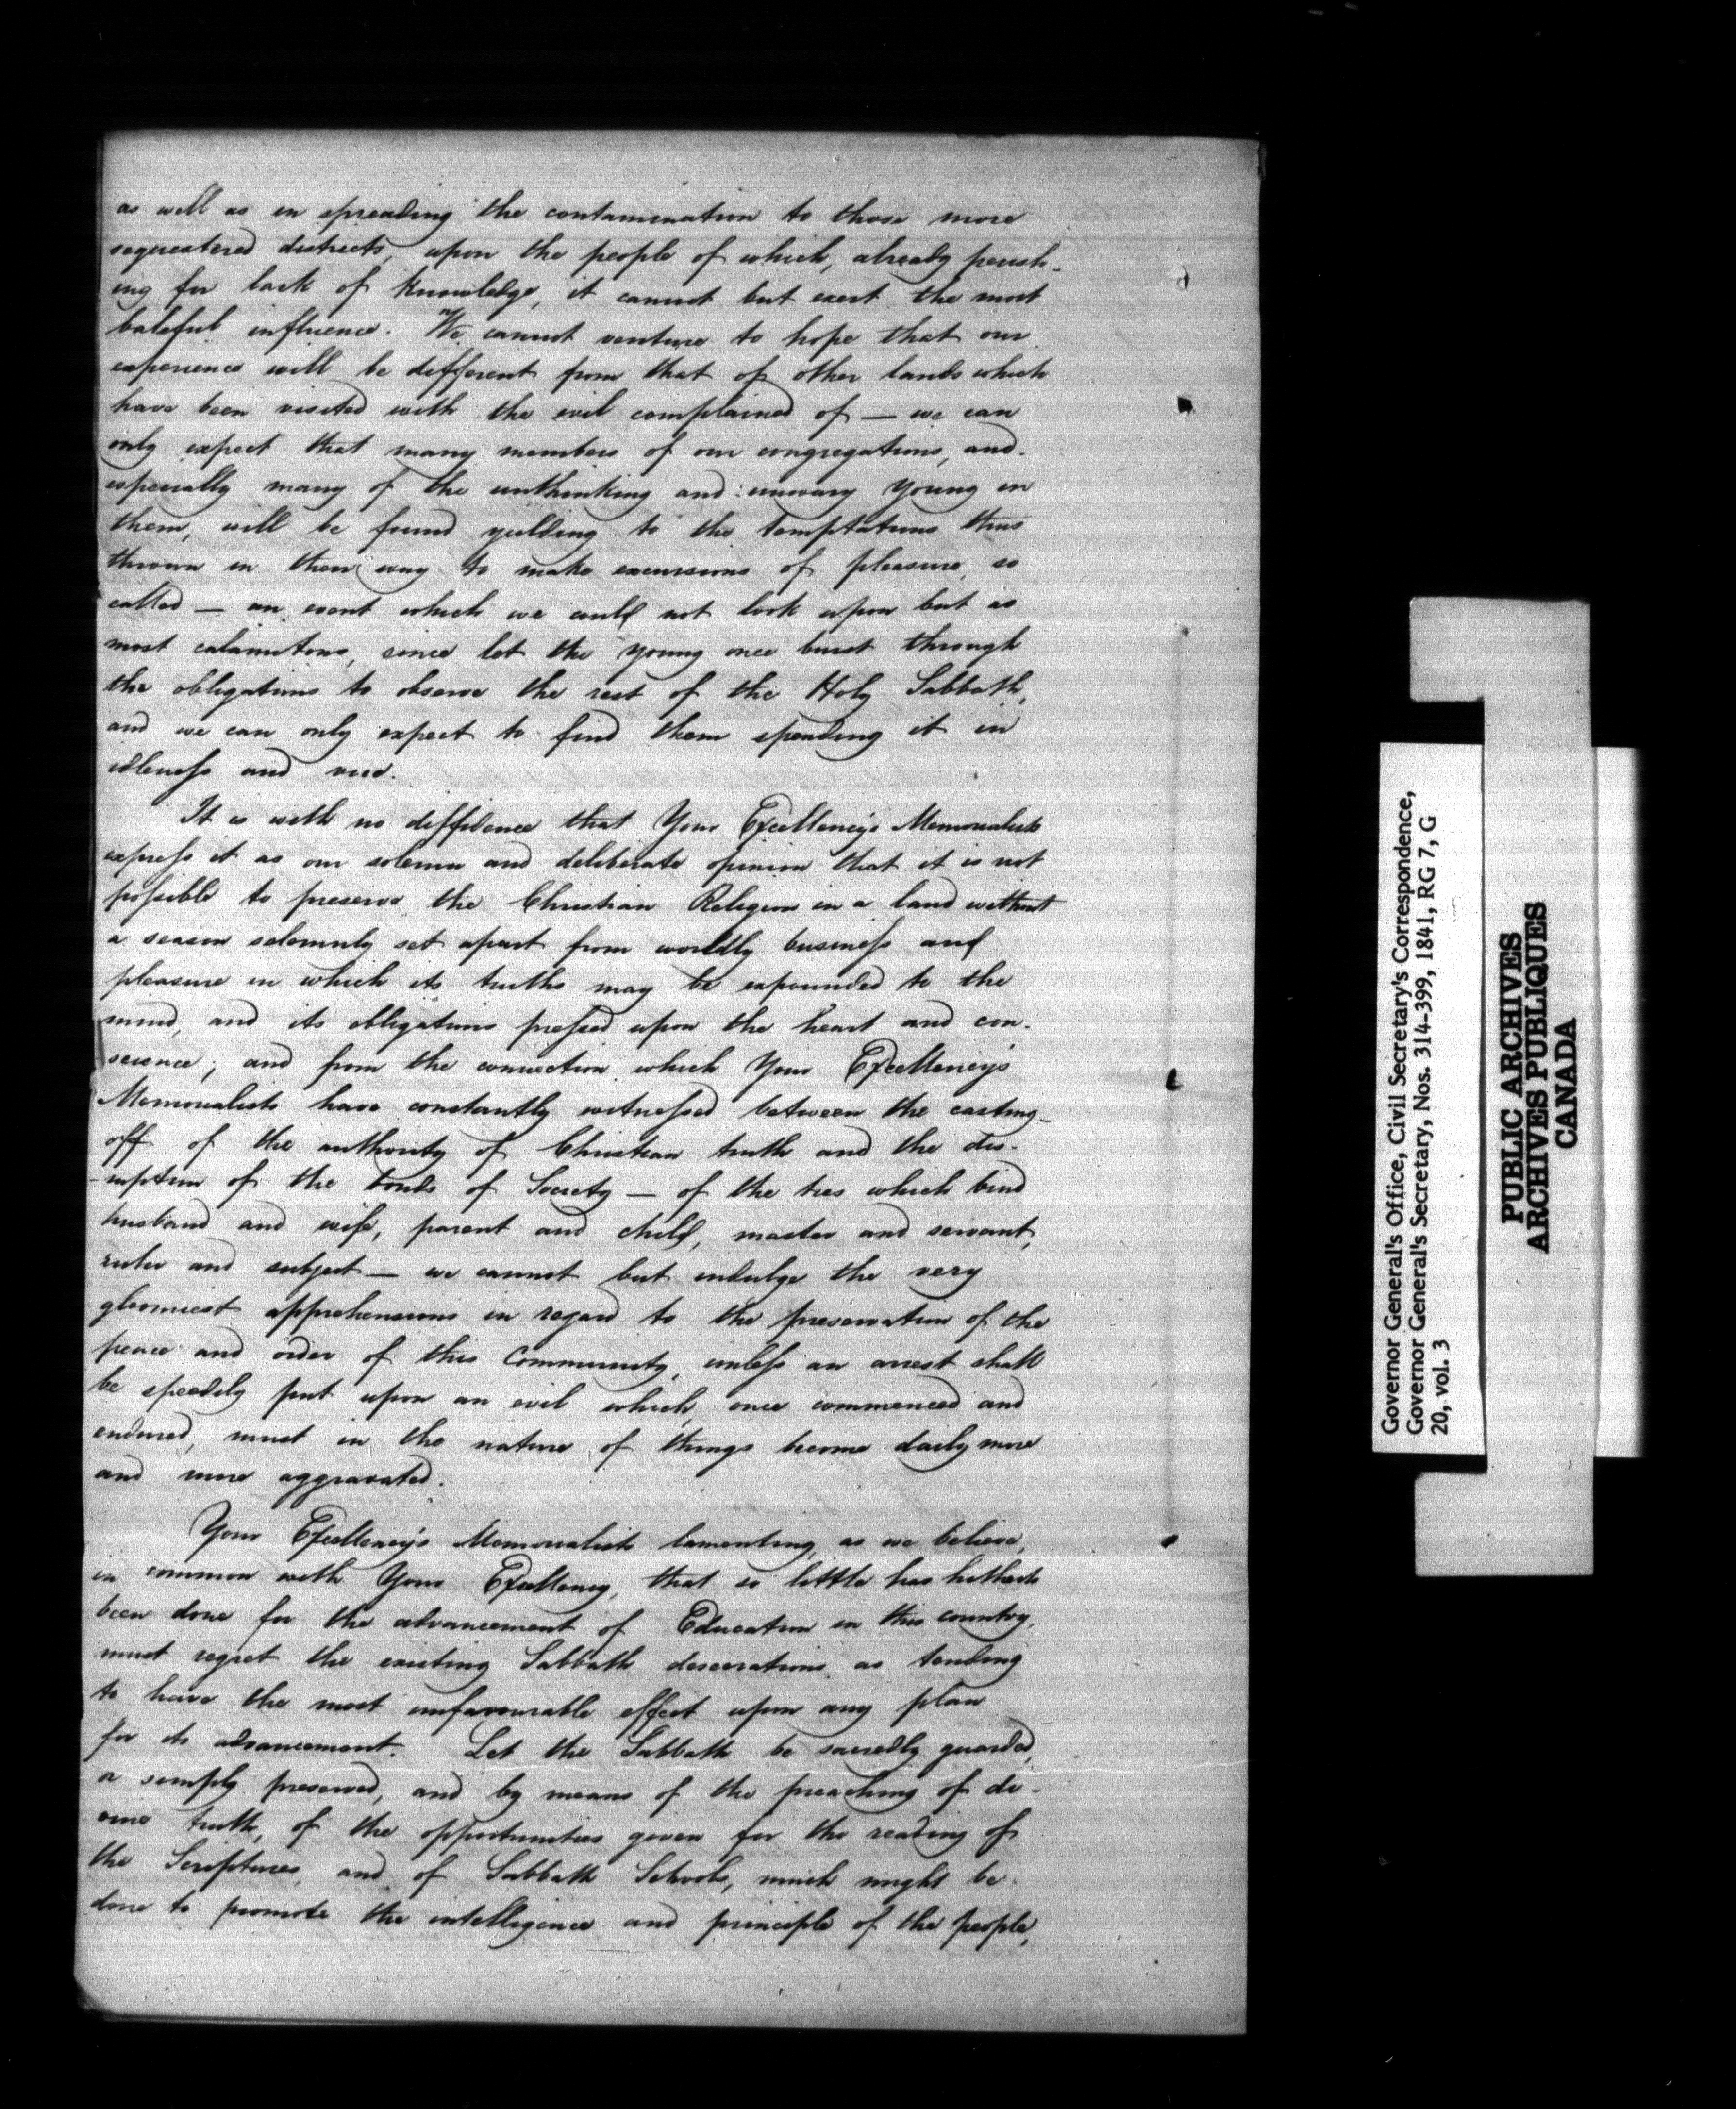 as well as in spreading the contamination to those more
sequestered districts, upon the people of which, already perish-
ing for lack of knowledge, it cannot but exert the most
baleful influence. We cannot venture to hope that our
experience will be different from that of other lands which
have been visited with the evil complained of — we can
only expect that many members of our congregations, and
especially many of the unthinking and unwary young in
them, will be found yielding to the temptations thus
thrown in their way to make excursions of pleasure, so
called — an event which we could not look upon but as
most calamitous, since let the young once burst through
the obligations to observe the rest of the Holy Sabbath,
and we can only expect to find them spending it in
idleness and vice.
It is with no diffidence that Your Excellency's Memorialists
express it as our solemn and deliberate opinion that it is not
possible to preserve the Christian Religion in a land without
a season solemnly set apart from worldly business and
pleasure in which its truths may be expounded to the
mind, and its obligations pressed upon the heart and con-
science; and from the connection which Your Excellency's
Memorialists have constantly witnessed between the casting-
off of the authority of Christian truth and the dis-
-ruption of the bonds of Society — of the ties which bind
husband and wife, parent and child, master and servant,
ruler and subject — we cannot but indulge the very
gloomiest apprehensions in regard to the preservation of the
peace and order of this Community, unless an arrest shall
be speedily put upon an evil which, once commenced and
endured, must in the nature of things become daily more
and more aggravated.
Your Excellency's Memorialists lamenting, as we believe,
in common with Your Excellency, that so little has hitherto
been done for the advancement of Education in this country,
must regret the existing Sabbath desecrations as tending
to have the most unfavourable effect upon any plan
for its advancement. Let the Sabbath be sacredly guarded,
or simply preserved, and by means of the preaching of di-
vine truth, of the opportunities given for the reading of
the Scriptures, and of Sabbath Schools, much might be
done to promote the intelligence and principle of the people,
Governor General's Office, Civil Secretary's Correspondence,
Governor General's Secretary, Nos. 314-399, 1841, RG 7, G
20, vol. 3
PUBLIC ARCHIVES
ARCHIVES PUBLIQUES
CANADA